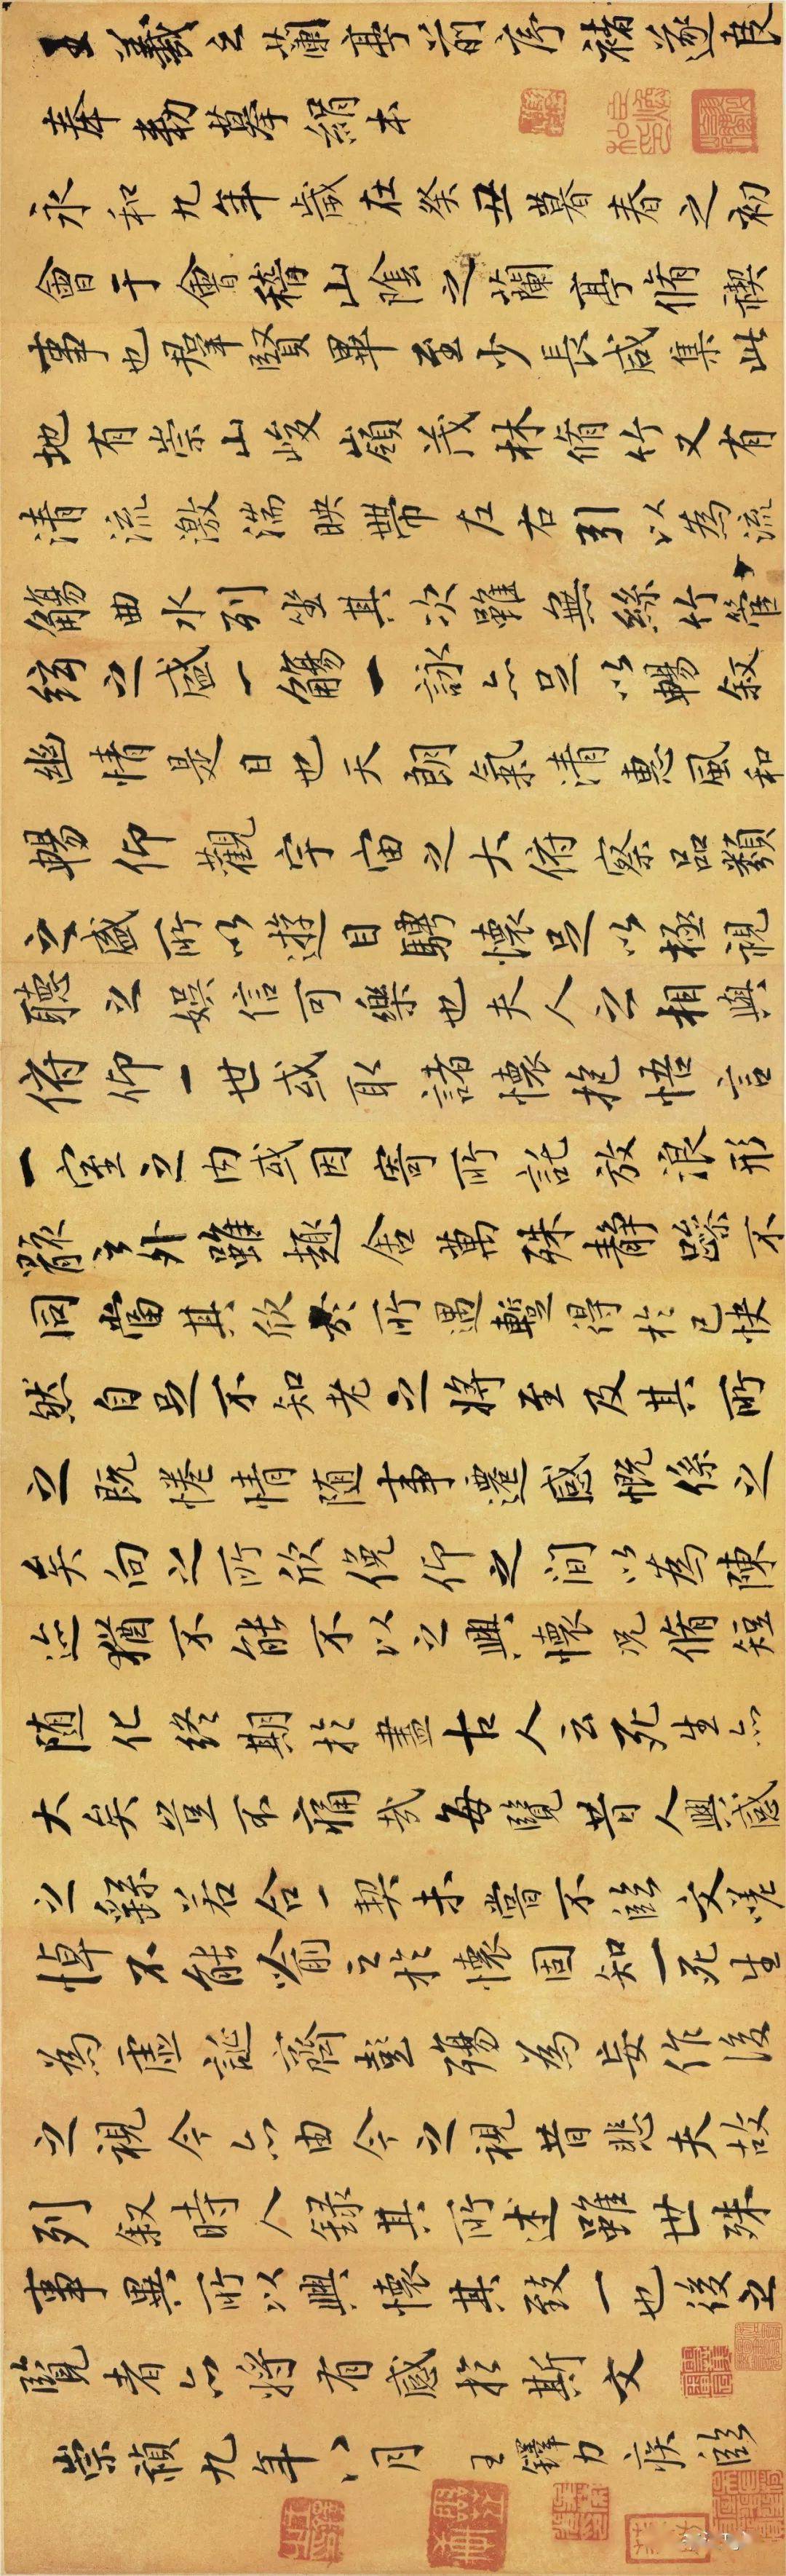 王羲之蘭亭前序褚遂良
奉勅摹絹本
永和九年歲在癸丑暮春之初
會于會稽山陰之蘭亭脩禊
事也羣賢畢至少長咸集此
地有崇山峻嶺茂林脩竹又有
清流激湍映帶左右引以為流
觴曲水列坐其次雖無絲竹管
絃之盛一觴一詠亦足以暢叙
幽情是日也天朗氣清惠風和
暢仰觀宇宙之大俯察品類
之盛所以遊目騁懷足以極視
聽之娛信可樂也夫人之相與
俯仰一世或取諸懷抱悟言
一室之內或因寄所託放浪形
骸之外雖趣舍萬殊靜躁不
同當其欣於所遇暫得於己快
然自足不知老之將至及其所
之既惓情随事遷感慨係之
矣向之所欣俛仰之間以為陳
迹猶不能不以之興懷况脩短
随化終期於盡古人云死生亦
大矣豈不痛哉每覽昔人興感
之繇若合一契未嘗不臨文嗟
悼不能喻之於懷固知一死生
為虛誕齊彭殤為妄作後
之視今亦由今之視昔悲夫故
列叙時人録其所述雖世殊
事異所以興懷其致一也後之
覽者亦將有感於斯文
崇禎九年八月 王鐸力疾臨